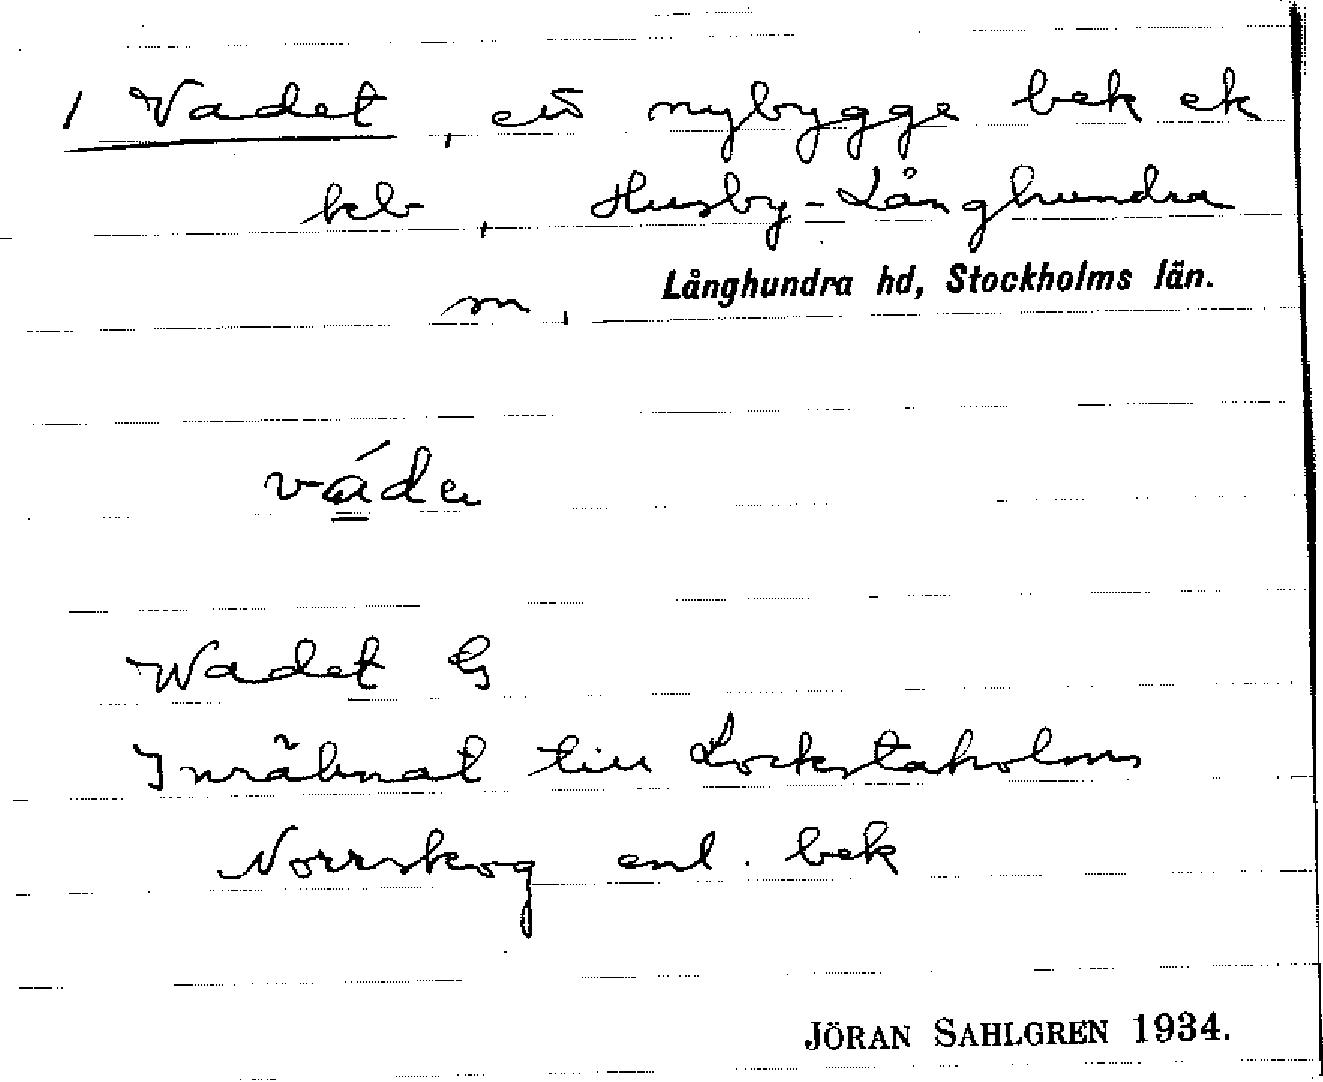 1 Vadet, ett nybygge bek ek
kb, Husby-Långhundra
sn, Långhundra hd, Stockholms län.
váda
Wadet G
Inräknat till Lockstaholms
Norrskog enl. bek
JÖRAN SAHLGREN 1934.